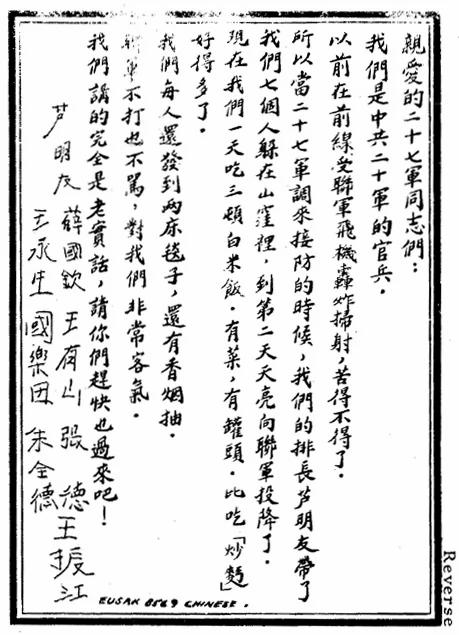 親愛的二十七軍同志們：
我們是中共二十軍的官兵．
以前在前線受聯軍飛機轟炸掃射，苦得不得了．
所以當二十七軍調來接防的時候，我們的排長芦明友帶了
我們七個人躲在山窪裡，到第二天天亮向聯軍投降了．
現在我們一天吃三頓白米飯．有菜，有罐頭．比吃「炒麵」
好得多了．
我們每人還發到兩床毯子，還有香烟抽．
聯軍不打也不罵，對我們非常客氣．
我們講的完全是老實話，請你們趕快也過來吧！
芦明友 薛國欽 王有山 張德 王振江
王承生 國樂田 朱全德
EUSAK 8569 CHINESE.
Reverse